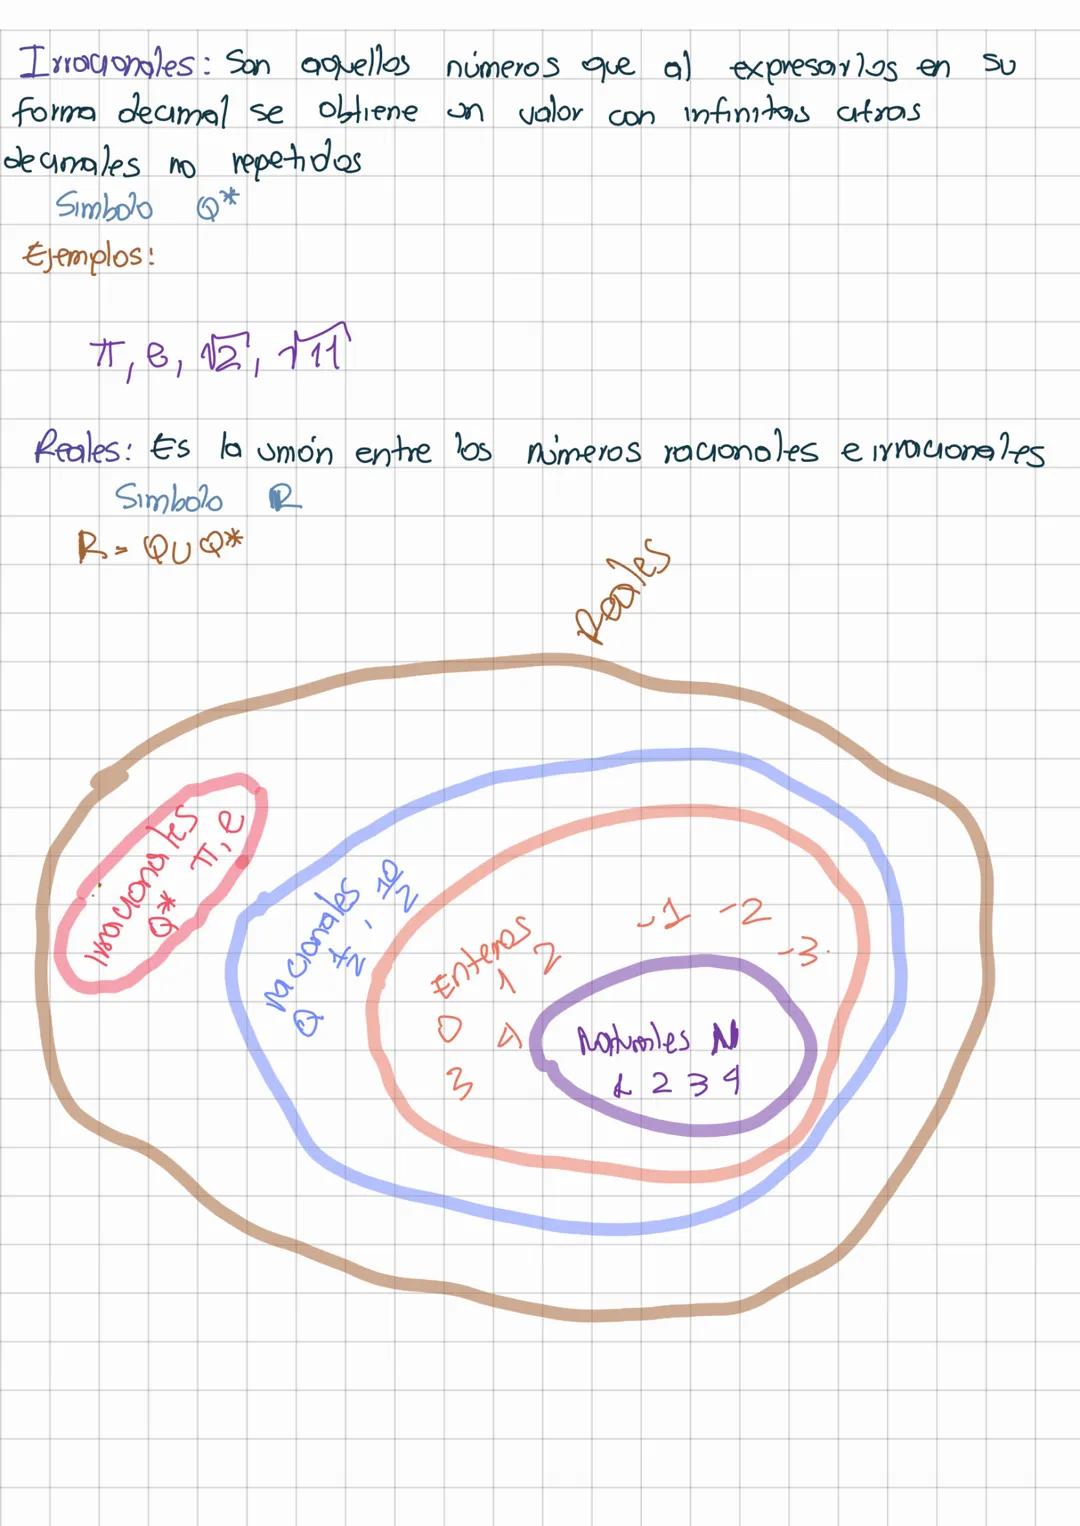 Irracionales: Son aquellos números que al expresarlos en su
forma decimal se obtiene un valor con infinitas cifras
decimales no repetidos
Simbolo Q*
Ejemplos:
π, e, √2, √11
Reales: Es la unión entre los números racionales e irracionales
Simbolo R
R = Q∪Q*
Reales
Irracionales
Q* π, e
racionales
Q
Enteros
1 2
-1 -2
-3
0 4
3
Naturales N
1 2 3 4